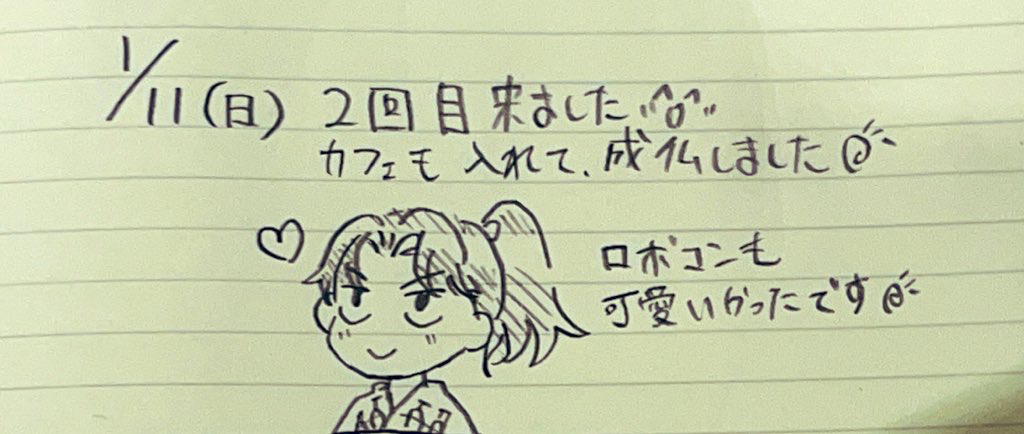 1/11(日) 2回目来ました
カフェも入れて、成仏しました
ロボコンも
可愛いかったです